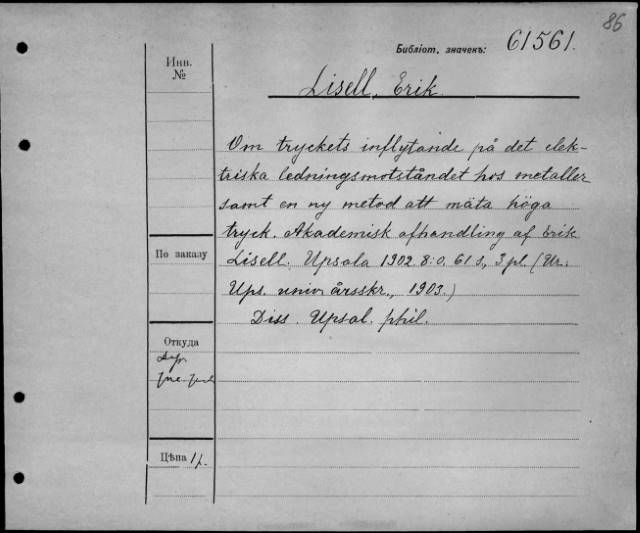 86
Библіот. значекъ: 61561.
Инв.
№
Lisell, Erik.
Om tryckets inflytande på det elek-
triska ledningsmotståndet hos metaller
samt en ny metod att mäta höga
tryck. Akademisk afhandling af Erik
По заказу
Lisell. Upsala 1902. 8:o. 61 s., 3 pl. (Ur:
Ups. univ årsskr., 1903.)
Diss. Upsal. phil.
Откуда
Цѣна 1 р.